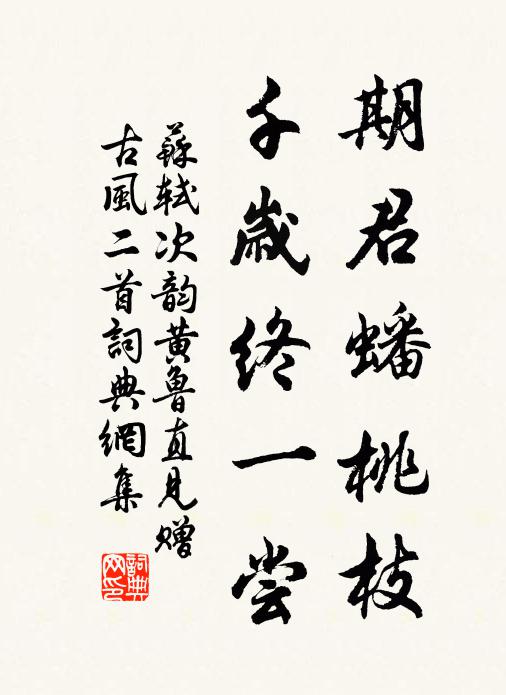 期君蟠桃枝
千歲終一尝
蘇轼次韵黄魯直見赠
古風二首詞典網集
詞典网印